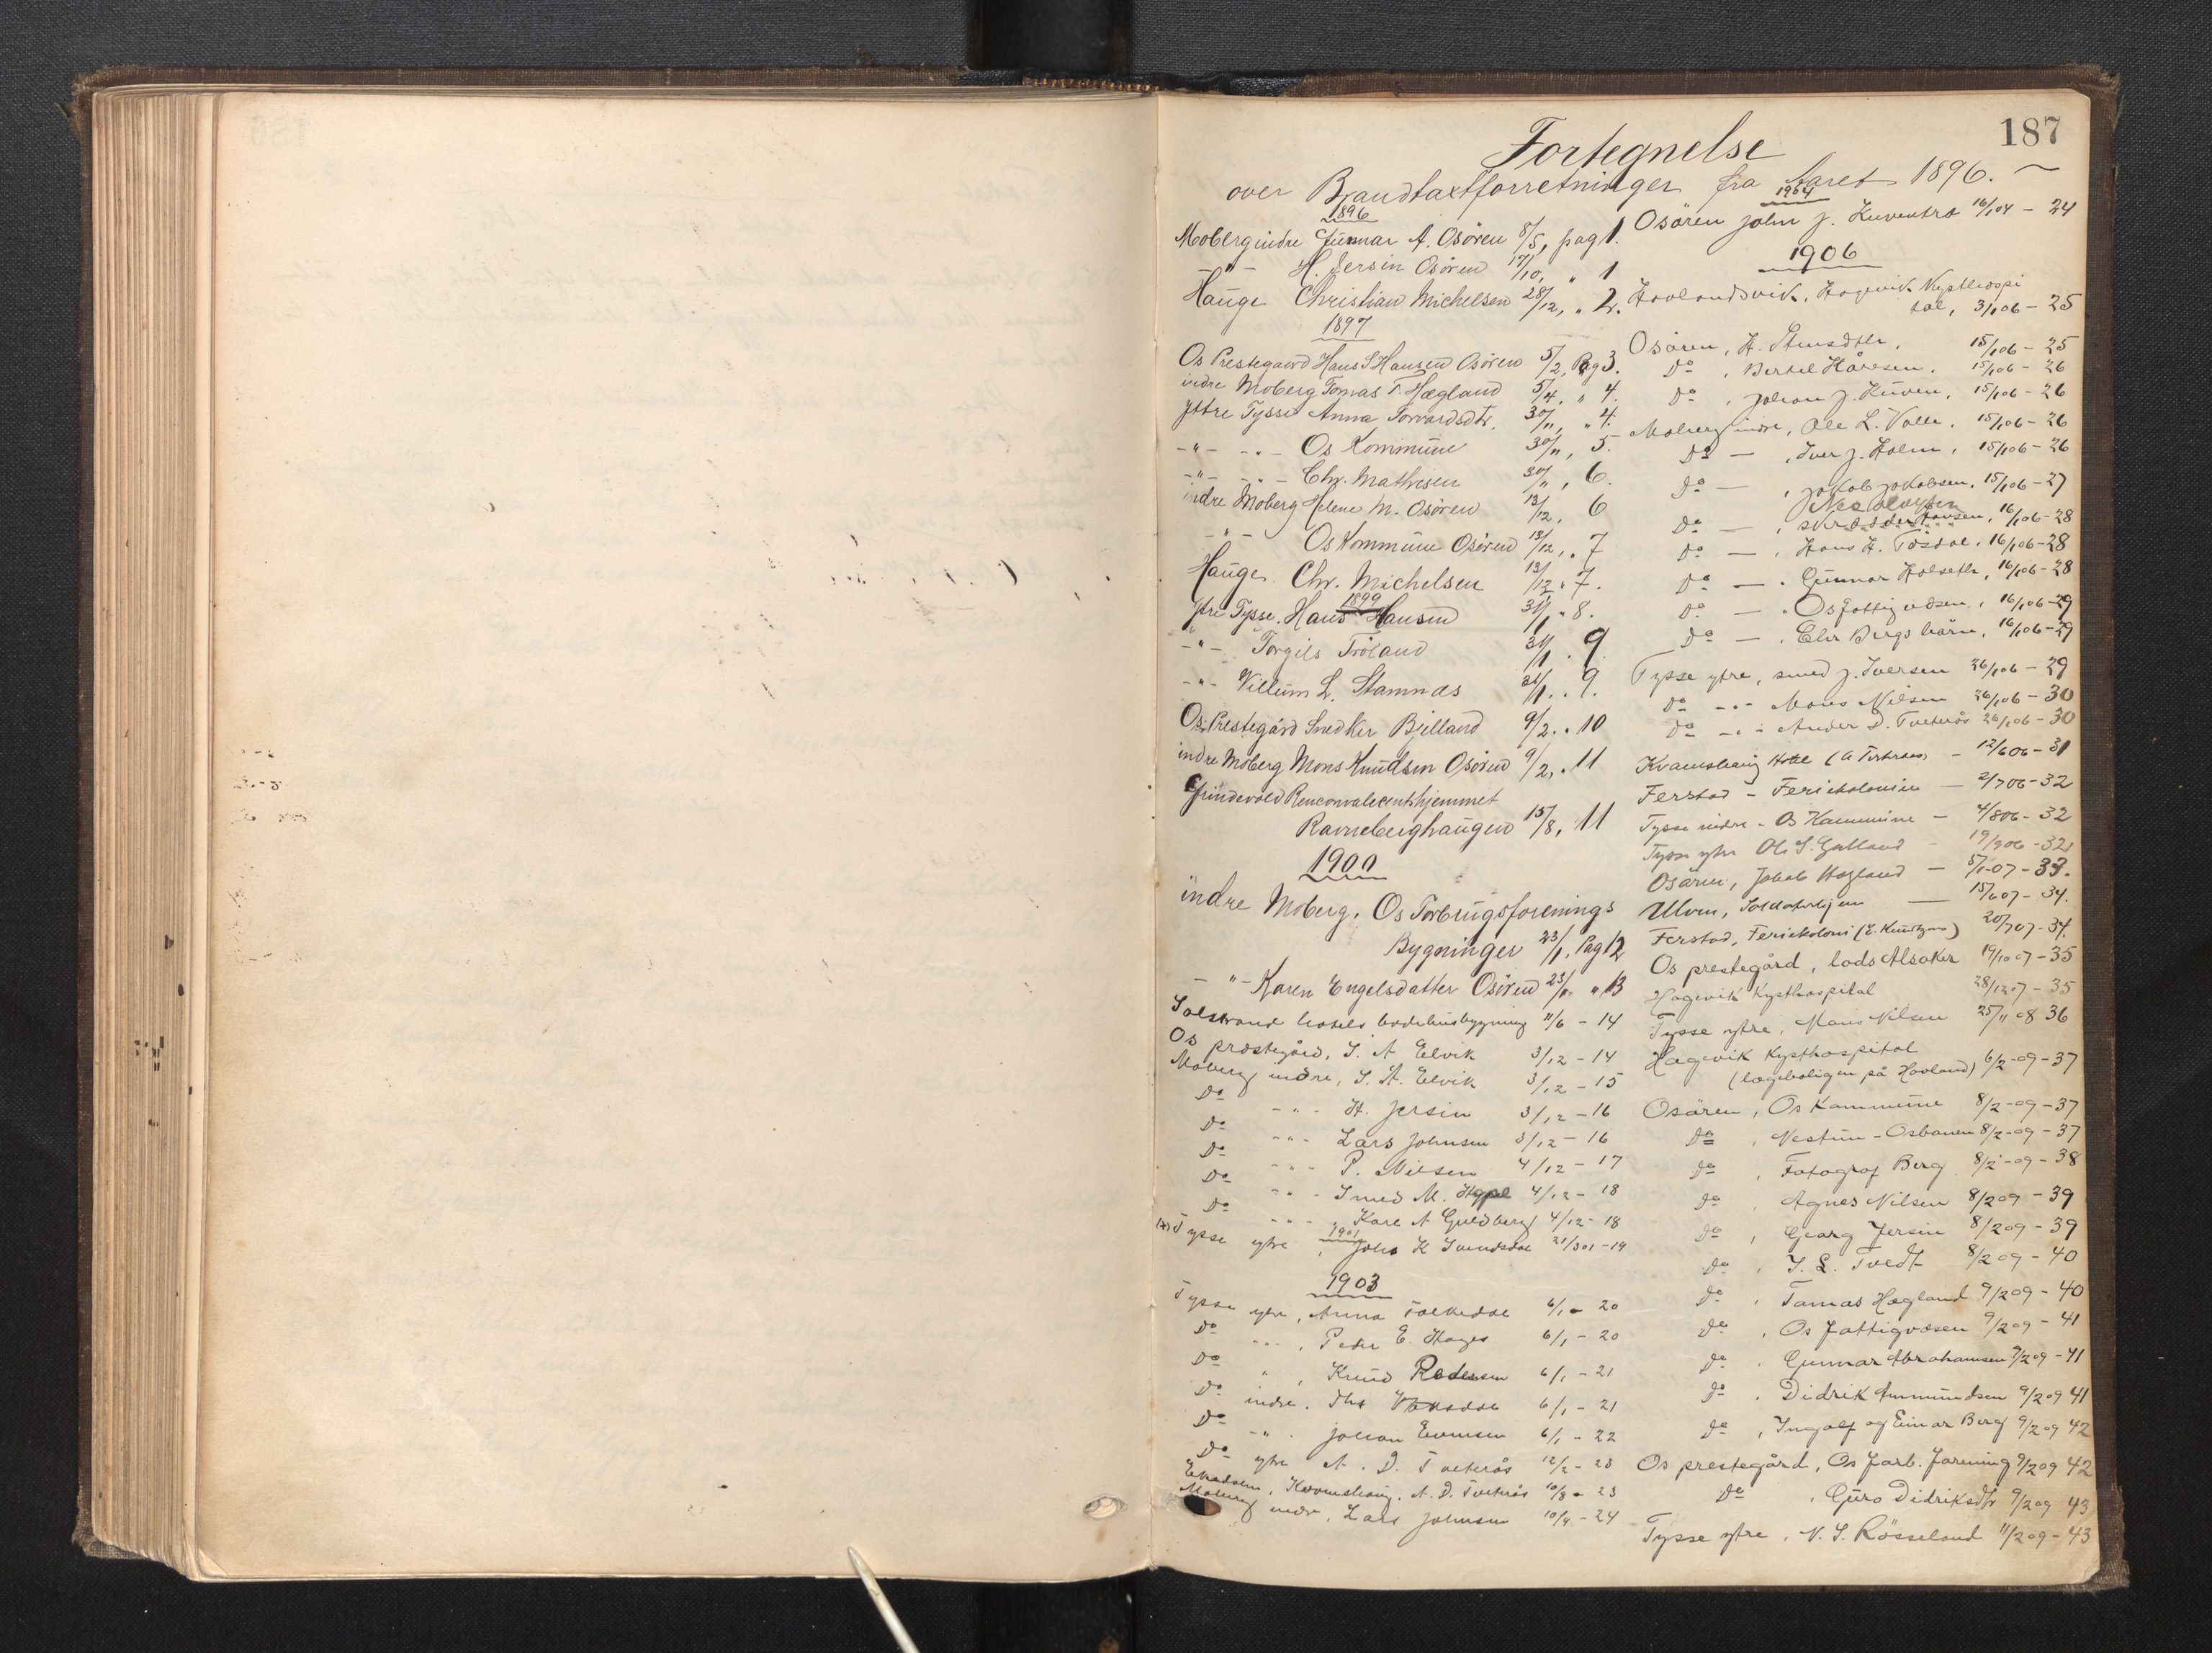 187
Fortegnelse
over Brandtaxtforretninger fra Aaret 1896.
1896
Moberg indre Gunnar A. Osören 8/5, pag 1.
-"- H. Jersin Osören 17/10, " 1
Hauge Christian Michelsen 28/12, " 2.
1897
Os Prestegaard Hans S Hansen Osören 5/2, Pag 3.
indre Moberg Tomas T. Hægland 5/4, " 4.
Yttre Tysse Anna Torvardsdtr. 30/11, " 4.
-"- -"- Os Kommune 30/11, 5.
-"- -"- Chr. Mathisen 30/11, 6.
indre Moberg Helene M. Osören 13/12, 6
-"- Os Kommune Osören 13/12, " 7
Hauge Chr. Michelsen 13/12 " 7.
1899
Ytre Tysse. Hans Hansen 31/1 " 8.
-"- Torgils Tröland 31/1 . 9.
-"- Villum L. Stamnæs 31/1 . . 9.
Os. Prestegård Snedker Bjelland 9/2 . . 10
indre Moberg Mons Knudsen Osören 9/2, . 11
Grindevold Renconvalecentshjemmet
Ravneberghaugen 15/8, 11
1900
indre Moberg. Os Forbrugsforenings
Bygninger 23/1, Pag 12
-"- Karen Engelsdatter Osören 23/1 " 13
Solstrand hotels badehusbygning 11/6 - 14
Os prestegård, S. A. Elvik 3/12 - 14
Moberg indre, S. A. Elvik 3/12 - 15
Do -"- H. Jersin 3/12 - 16
Do -"- Lars Johnsen 3/12 - 16
Do -"- P. Nilsen 4/12 - 17
Do -"- Smed M. 4/12 - 18
Do -"- Karl A Guldberg 4/12 - 18
1901
Tysse ytre, John K Svendsdal 21/301 - 19
1903
Tysse ytre, Anna 6/1 - 20
Do -"-, Peder E. Hauge 6/1 - 20
Do " , Knud Pedersen 6/1 - 21
Do indre. 6/1 - 21
Do -"- Johan Evensen 6/1 - 22
Do ytre A. D. Tveterås 12/2 - 23
Kvamshaug. A. D. Tveterås 10/8 - 23
Moberg indre, Lars Johnsen 10/9 - 24
1904
Osören John J. Kuventræ 16/104 - 24
1906
Hovlandsvik, Hagevik Kysthospi
tal, 3/106 - 25
Osören, H. 15/106 - 25
Do , Bertel Håresen. 15/106 - 26
Do , Johan J. Kuven. 15/106 - 26
Moberg indre, Ole L. Valle. 15/106 - 26
Do — , Iver J. Holm, 15/106 - 26
Do — , Jakob Jakobsen. 15/106 - 27
Do — , 16/106 - 28
Do — , Hans H. Tösdal. 16/106 - 28
Do — . Gunnar Holseth, 16/106 - 28
Do — . Os fattigvæsen. 16/106 - 29
Do — . Elis Bergs börn, 16/106 - 29
Tysse ytre, smed J. Iversen 26/106 - 29
Do -"- Mons Nilsen 26/106 - 30
Do -"- Anders D. Tveterås 26/106 - 30
Kvamshaug Hotel (A Tveteraas) - 12/606 - 31
Ferstad - Feriekolonien — 2/706 - 32
Tysse indre - Os Kommune - 4/806 - 32
Tysse ytre Ole S. Gulland - 19/906 - 32
Osören, Jakob Hægland - 5/1-07 - 33.
Ulven, Soldaterhjem — 15/607 - 34.
Ferstad, Feriekoloni (E. Knutzen) 20/707 - 34.
Os prestegård, lods Alsaker 19/1007 - 35
Hagevik Kysthospital 28/1207 - 35
Tysse ytre, Mons Nilsen 25/1108 36
Hagevik Kysthospital
(lægeboligen på Hovland) 6/2-09 - 37
Osören, Os Kommune 8/2-09 - 37
Do , Nestun - Osbanen 8/2-09 - 37
Do , Fotograf Berg 8/2-09 - 38
Do . Agnes Nilsen 8/209 - 39
Do , Georg Jersin 8/209 - 39
Do . S. L. Tvedt 8/209 - 40
Do , Tomas Hægland 9/209 - 40
Do , Os fattigvæsen 9/209 - 41
Do . Gunnar Abrahamsen 9/209 - 41
Do . Didrik Ammundsen 9/209 41
Do , Ingolf og Einar Berg 9/209 42
Os prestegård, Os forb. forening 9/209 42
Do , Guro Didriksdtr 9/209 43
Tysse ytre, N. S. Rösseland 11/209 - 43